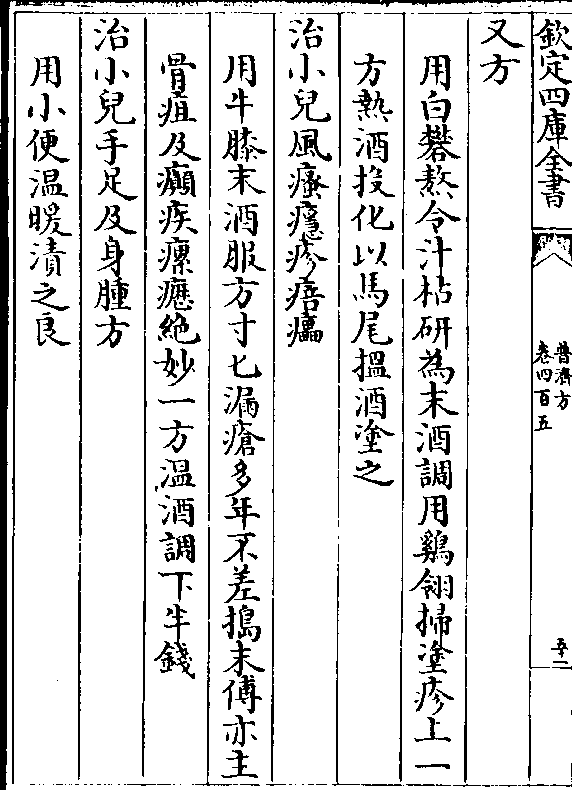 欽定四庫全書
普濟方
卷四百五
五十二
又方
用白礬熬令汁枯研為末酒調用鷄翎掃塗疹上一
方熱酒投化以馬尾搵酒塗之
治小兒風瘙癮疹㾦㿔
用牛膝末酒服方寸匕漏瘡多年不差搗末傅亦主
骨疽及癲疾瘰癧絶妙一方温酒調下半錢
治小兒手足及身腫方
用小便温暖漬之良